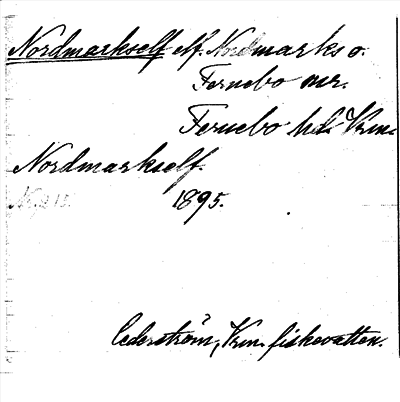 Nordmarkself elf. Nordmarks o.
Fernebo snr.
Fernebo hd. Vrm.
Nordmarkself.
1895.
Cederström, Vrm. fiskevatten.